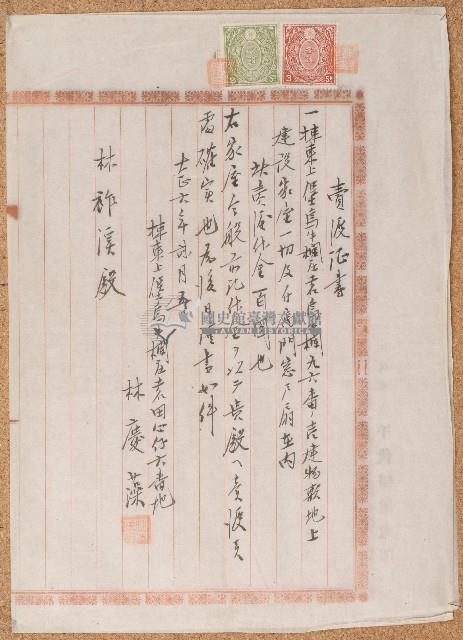 賣渡証書
一 棟東上堡烏牛欄庄烏牛欄九六番ノ壱建物敷地上
建設家屋一切及付屬門窓戶扇在內
此賣渡代金百圓也
右家屋今般前記代金ヲ以テ貴殿ヘ賣渡候
處確実也為後日證書如件
大正六年弐月五
棟東上堡烏牛欄庄田心仔六番地
林慶藻
林祚溪殿
國史館臺灣文獻館
TAIWAN HISTORICA
3 3